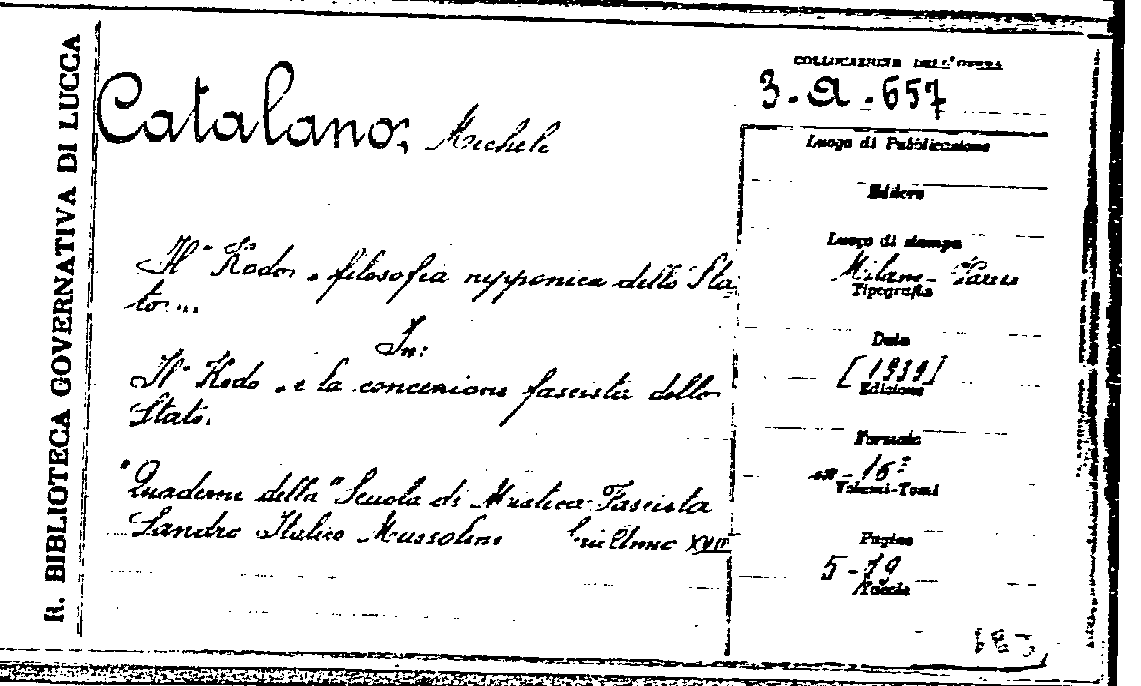 R. BIBLIOTECA GOVERNATIVA DI LUCCA
Catalano, Michele
Il "Kodo" filosofia nipponica dello Sta
to...
In:
Il "Kodo" e la concezione fascista dello
Stato.
"Quaderni della "Scuola di Mistica Fascista
Sandro Italico Mussolini Anno XVII
COLLOCAZIONE DELL'OPERA
3.a.657
Luogo di Pubblicazione
Editore
Luogo di stampa
Milano-
Tipografia
Data
[1939]
Edizione
Formato
16º
Volumi-Tomi
Pagine
5-19
Tavole